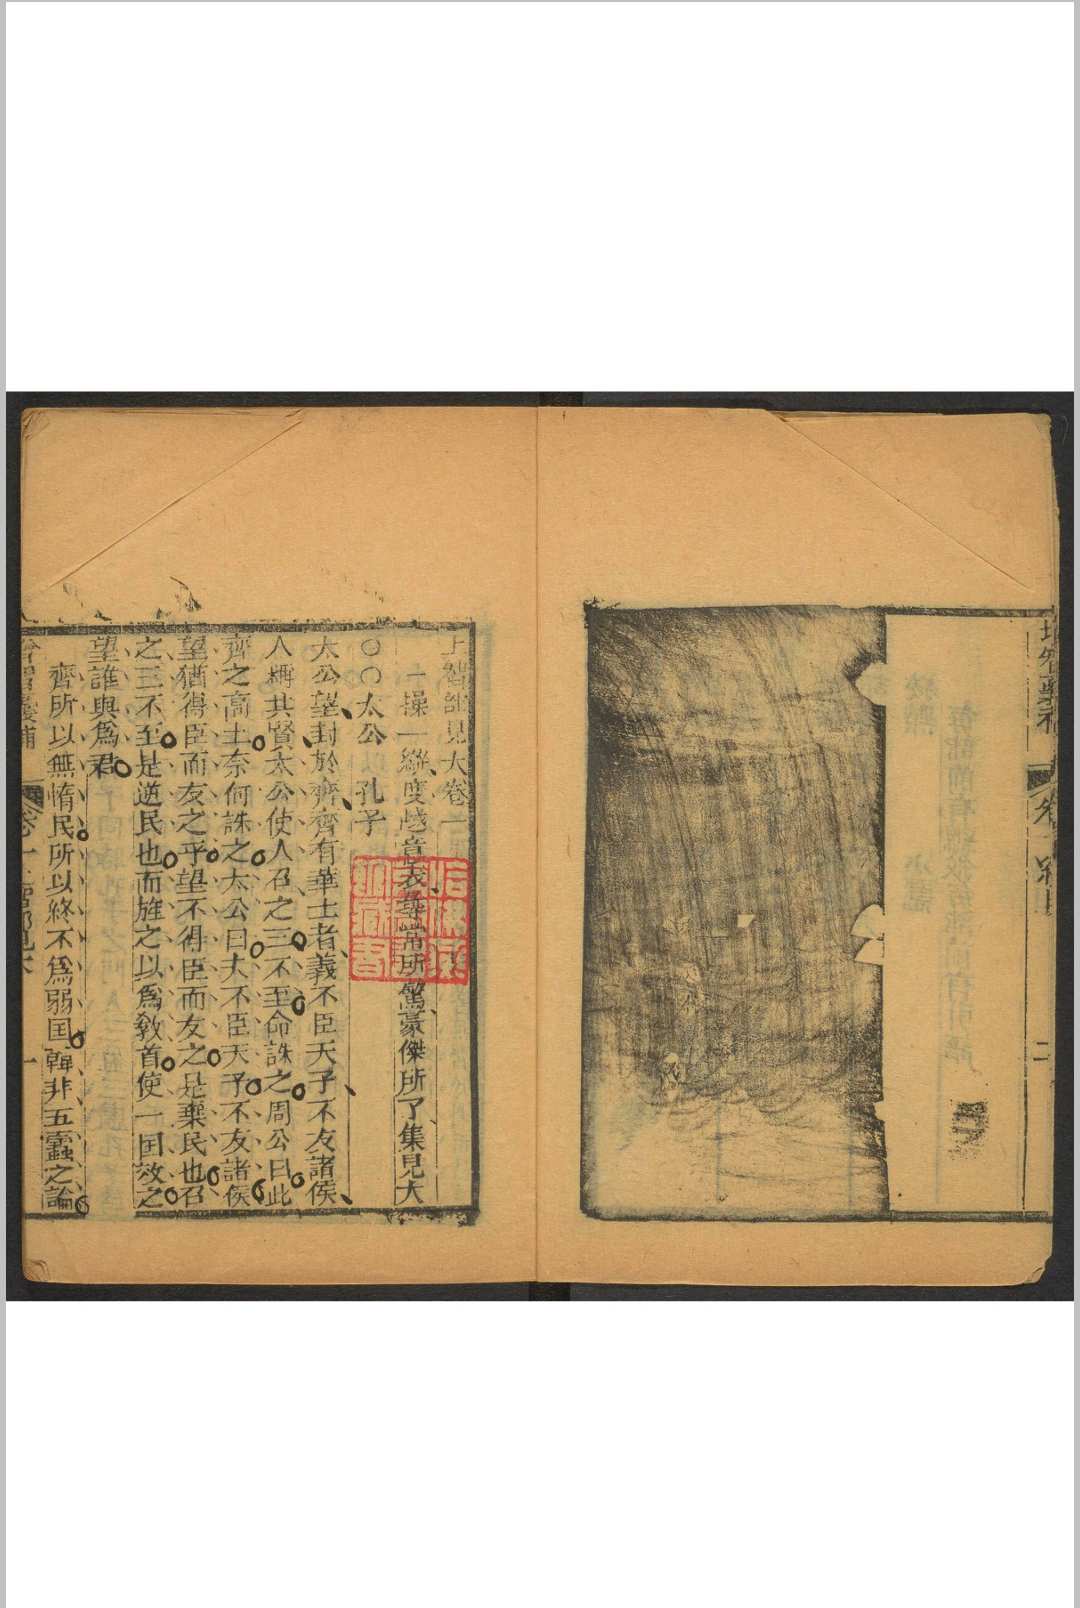 增智囊補
卷一
二
上智部見大卷一
一操一縱度越意表尋常所驚豪傑所了集見大
〇〇太公 孔子
太公望封於齊齊有華士者義不臣天子不友諸侯
人稱其賢太公使人召之三不至命誅之周公曰此
齊之高士奈何誅之太公曰夫不臣天子不友諸侯
望猶得臣而友之乎望不得臣而友之是棄民也召
之三不至是逆民也而旌之以爲敎首使一囯效之
望誰與爲君
齊所以無惰民所以終不爲弱囯韓非五蠹之論
智囊補
卷一 上智部見大
一